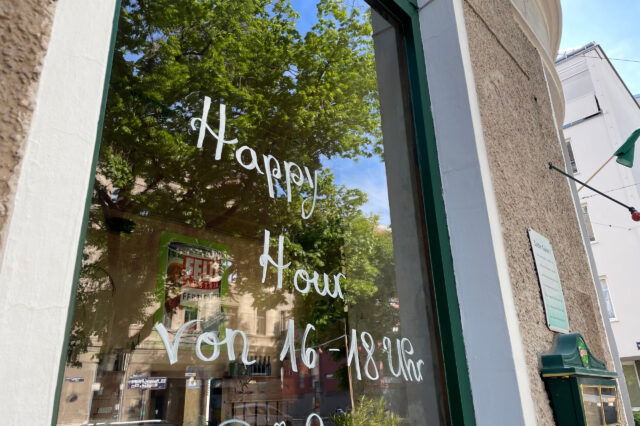 Happy
Hour
von 16-18 Uhr